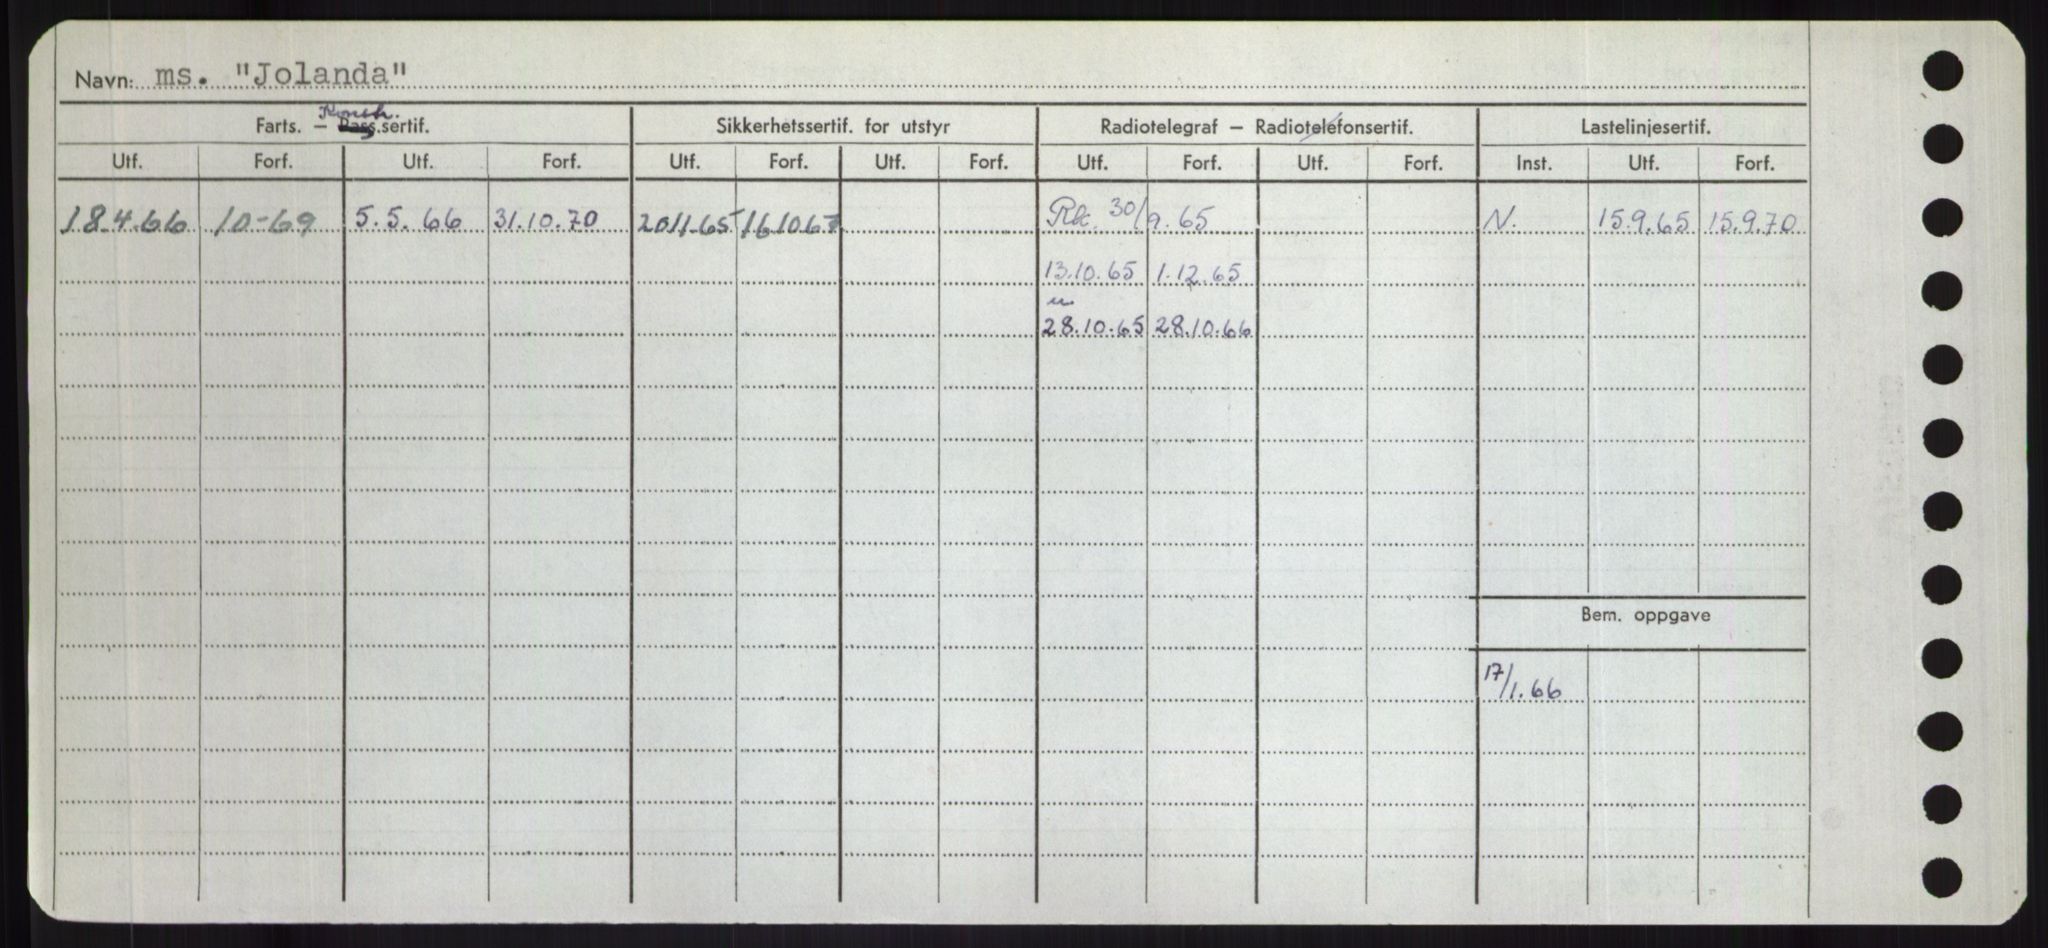 Navn: ms. "Jolanda"
Konstr.
Farts. — Pass.sertif. Sikkerhetssertif. for utstyr Radiotelegraf — Radiotelefonsertif. Lastelinjesertif.
Utf. Forf. Utf. Forf. Utf. Forf. Utf. Forf. Utf. Forf. Utf. Forf. Inst. Utf. Forf.
18.4.66 10-69 5.5.66 31.10.70 20.11.65 16.10.67 Rk. 30/9.65 N. 15.9.65 15.9.70
13.10.65 1.12.65
28.10.65 28.10.66
Bem. oppgave
17/1.66